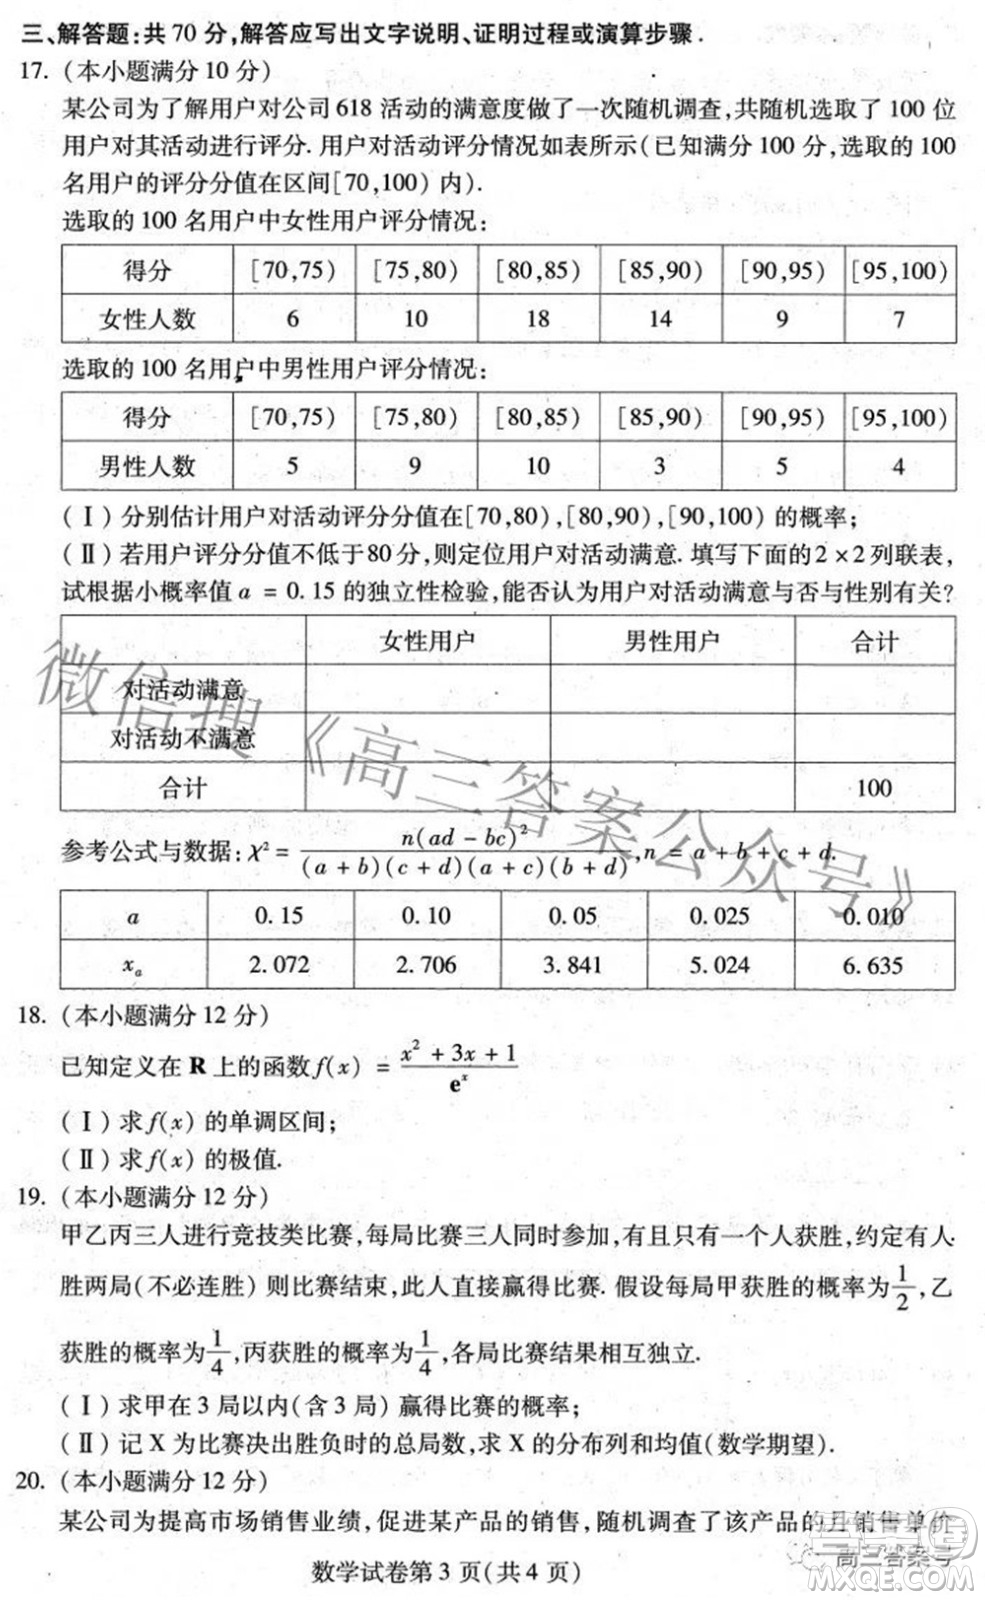 三、解答题:共 70 分,解答应写出文字说明、证明过程或演算步骤.
17. (本小题满分 10 分)
某公司为了解用户对公司 618 活动的满意度做了一次随机调查,共随机选取了 100 位
用户对其活动进行评分. 用户对活动评分情况如表所示(已知满分 100 分,选取的 100
名用户的评分分值在区间[70,100) 内).
选取的 100 名用户中女性用户评分情况:
得分 [70,75) [75,80) [80,85) [85,90) [90,95) [95,100)
女性人数 6 10 18 14 9 7
选取的 100 名用户中男性用户评分情况:
得分 [70,75) [75,80) [80,85) [85,90) [90,95) [95,100)
男性人数 5 9 10 3 5 4
(Ⅰ) 分别估计用户对活动评分分值在[70,80),[80,90),[90,100) 的概率;
(Ⅱ) 若用户评分分值不低于 80 分,则定位用户对活动满意. 填写下面的 2 × 2 列联表,
试根据小概率值 a = 0.15 的独立性检验,能否认为用户对活动满意与否与性别有关?
女性用户 男性用户 合计
对活动满意
对活动不满意
合计 100
参考公式与数据: χ² = n(ad - bc)² / (a + b)(c + d)(a + c)(b + d), n = a + b + c + d.
a 0.15 0.10 0.05 0.025 0.010
xₐ 2.072 2.706 3.841 5.024 6.635
18. (本小题满分 12 分)
已知定义在 R 上的函数 f(x) = x² + 3x + 1 / eˣ
(Ⅰ) 求 f(x) 的单调区间;
(Ⅱ) 求 f(x) 的极值.
19. (本小题满分 12 分)
甲乙丙三人进行竞技类比赛,每局比赛三人同时参加,有且只有一个人获胜,约定有人
胜两局(不必连胜) 则比赛结束,此人直接赢得比赛. 假设每局甲获胜的概率为 1/2,乙
获胜的概率为 1/4,丙获胜的概率为 1/4,各局比赛结果相互独立.
(Ⅰ) 求甲在 3 局以内(含 3 局) 赢得比赛的概率;
(Ⅱ) 记 X 为比赛决出胜负时的总局数,求 X 的分布列和均值(数学期望).
20. (本小题满分 12 分)
某公司为提高市场销售业绩,促进某产品的销售,随机调查了该产品的月销售单价
数学试卷第 3 页(共 4 页)
微信搜《高三答案公众号》
高三答案号
MXQE.COM